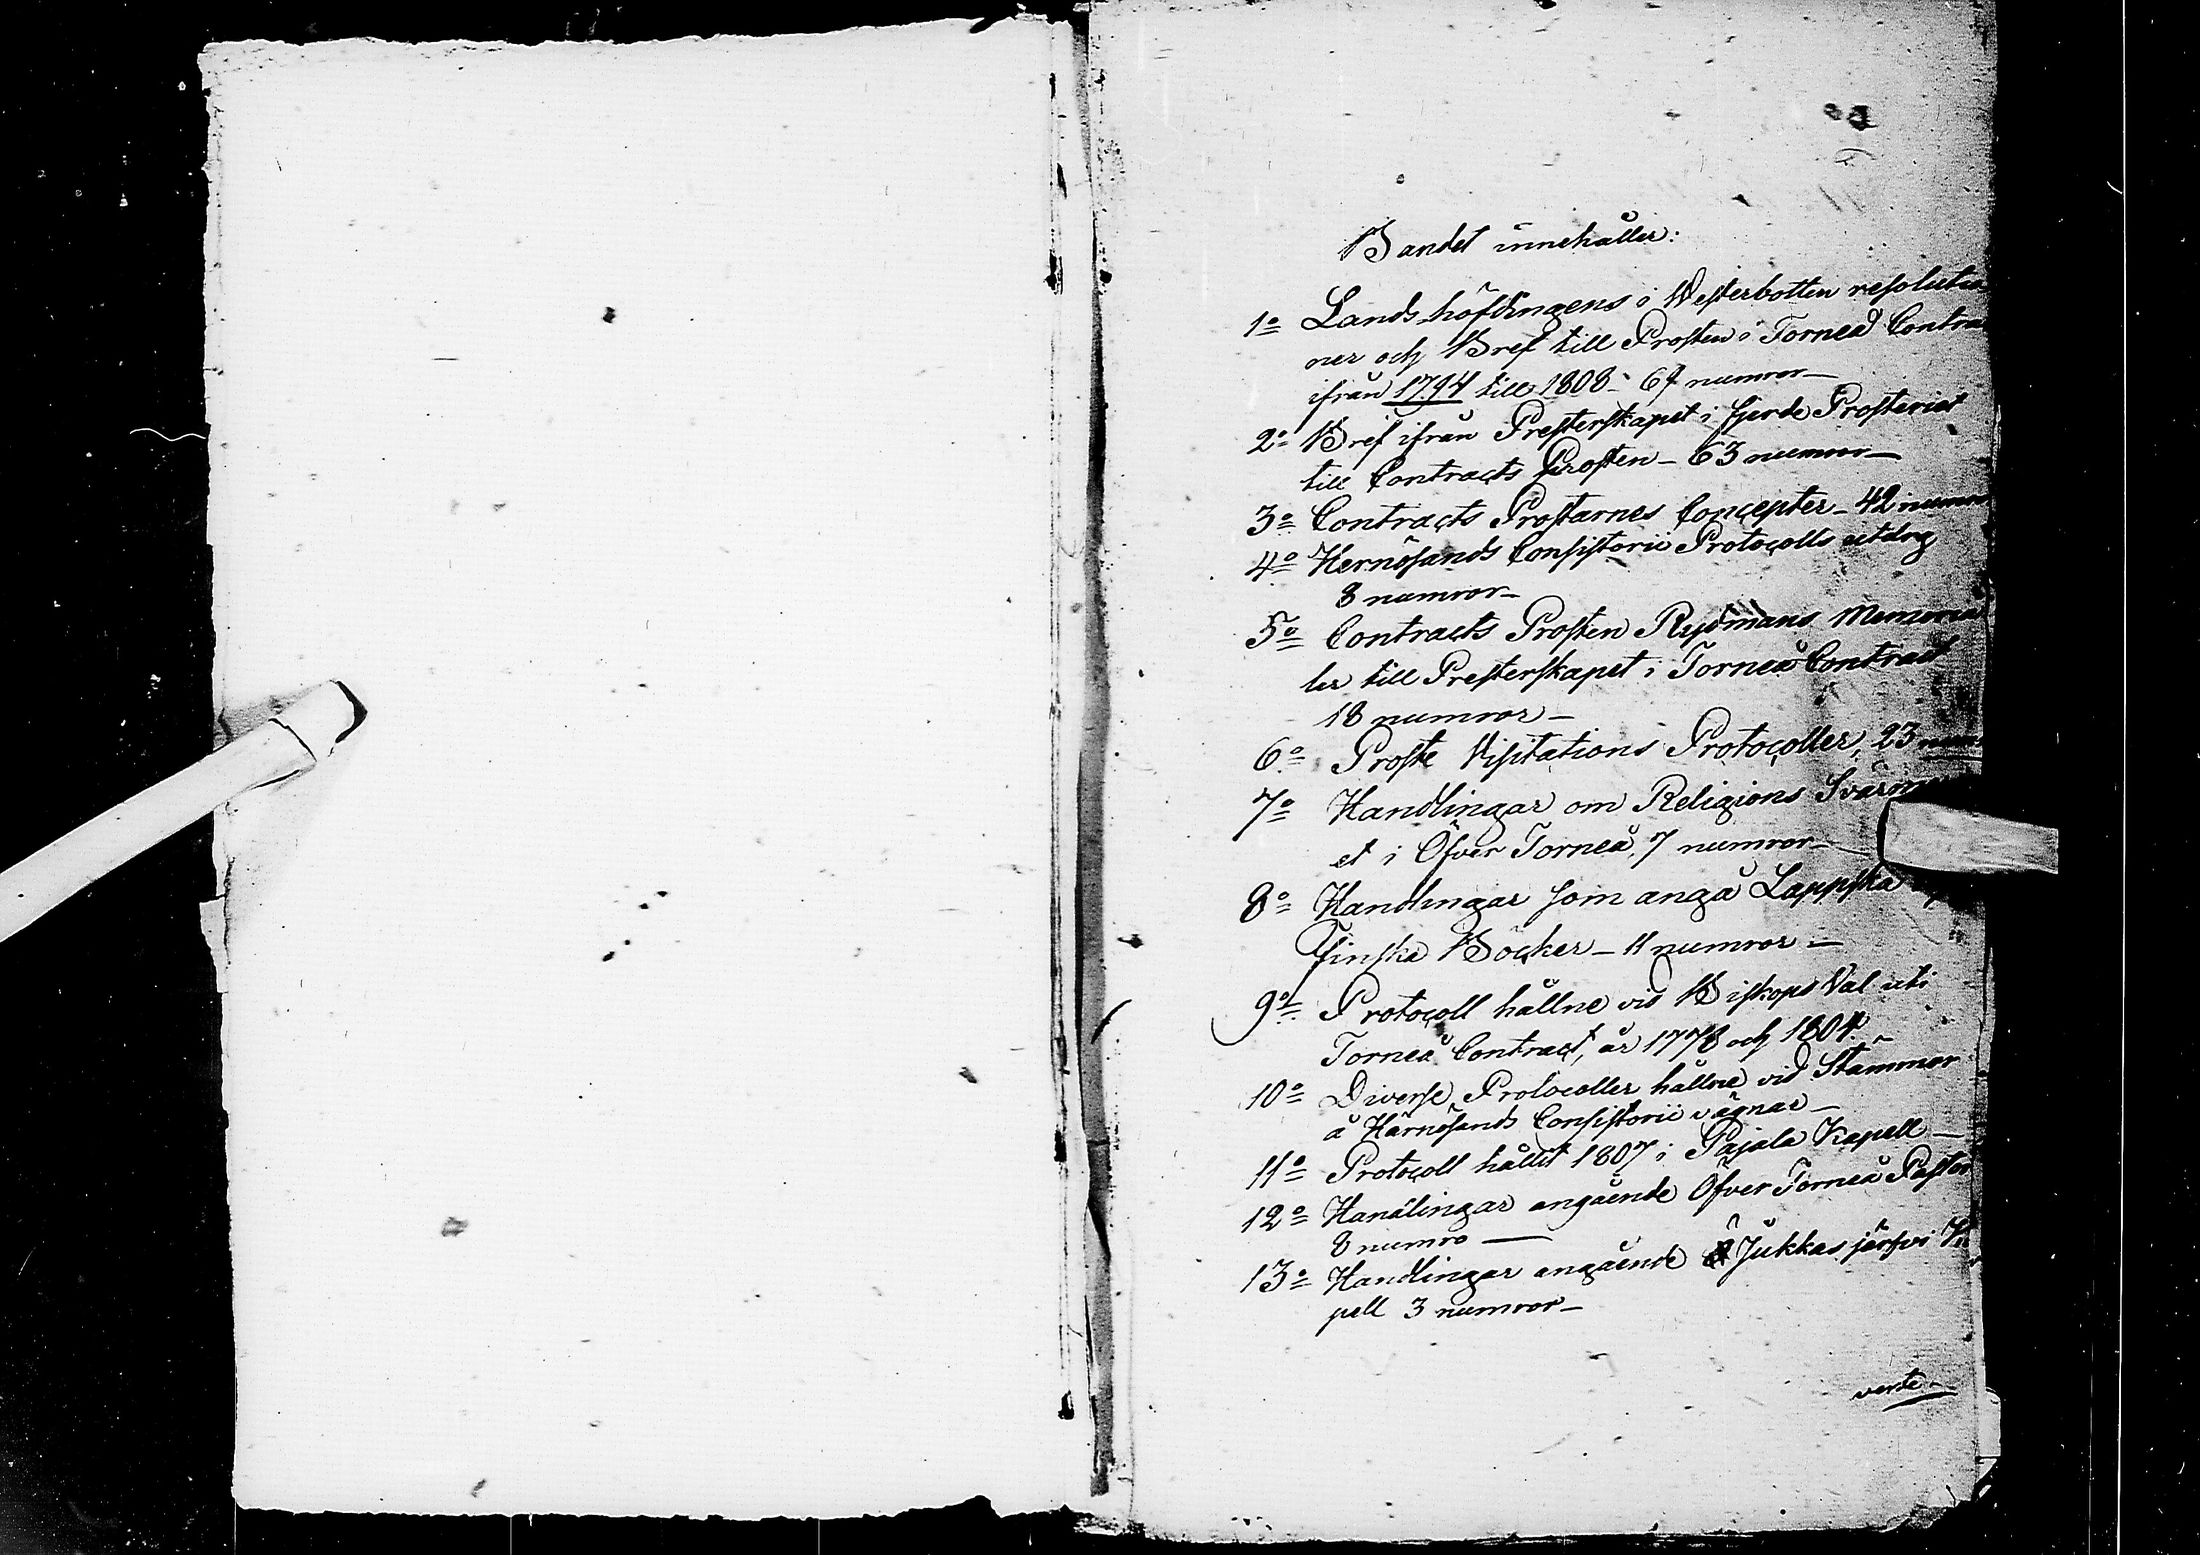 Bandet innehåller:
1o Landshöfdingens i Westerbotten resolutio
ner och Bref till Prosten i Torneå Contra
ifrån 1794 till 1808 - 67 numror -
2o Bref ifrån Presterskapet i fjerde Prosteriet
till Contracts Prosten - 63 numror -
3o Contracts Prostarnes Concepter - 42 numro
4o Hernösands Consistorii Protocolls utdrg
8 numror -
5o Contracts Prosten Rydmans Memoria
ler till Presterskapet i Torneå Contract
18 numror -
6o Proste Visitations Protocoller, 23 num
7o Handlingar om Religions Svärm
et i Öfver Torneå, 7 numror -
8o Handlingar som angå Lappska
Finska Böcker - 11 numror -
9o Protocoll hållne vid Biskops Val uti
Torneå Contract, år 1778 och 1804. -
10o Diverse Protocoller hållne vid Stämmor
å Härnösands Consistorii vägnar -
11o Protocoll hållit 1807 i Pajala Kapell -
12o Handlingar angående Öfver Torneå Pastor
8 numro -
13o Handlingar angående Jukkasjärfvi Ka
pell 3 numror -
verte -